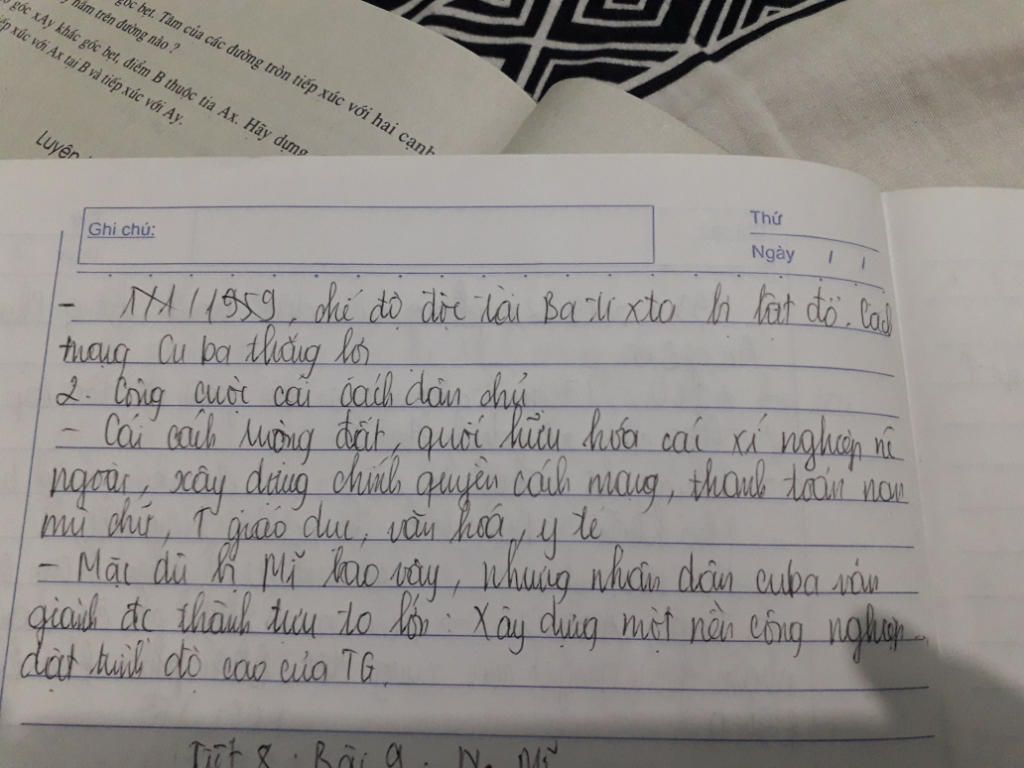 góc bẹt. Tâm của các đường tròn tiếp xúc với hai cạnh
nằm trên đường nào ?
góc xAy khác góc bẹt, điểm B thuộc tia Ax. Hãy dựng
xúc với Ax tại B và tiếp xúc với Ay.
Luyện
Ghi chú:
Thứ
Ngày / /
- 1/1/1959, chế độ độc tài Ba ti xta bị lật đổ. Cách
mạng Cu ba thắng lợi
2. Công cuộc cải cách dân chủ
- Cải cách ruộng đất, quốc hữu hóa các xí nghiệp nc
ngoài, xây dựng chính quyền cách mạng, thanh toán nạn
mù chữ, giáo dục, văn hoá, y tế
- Mặc dù bị Mĩ bao vây, nhưng nhân dân cuba vẫn
giành đc thành tựu to lớn: Xây dựng một nền công nghiệp
đạt trình độ cao của TG.
Tiết 8. Bài 9. N. Mĩ